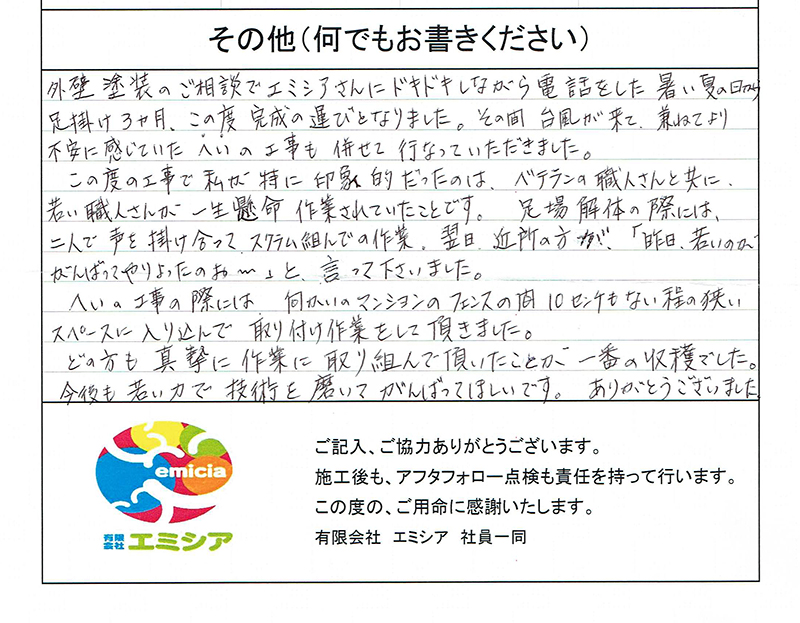 その他（何でもお書きください）
外壁塗装のご相談でエミシアさんにドキドキしながら電話をした暑い夏の日から
足掛け3ヵ月、この度完成の運びとなりました。その間台風が来て、兼ねてより
不安に感じていたへいの工事も併せて行なっていただきました。
この度の工事で私が特に印象的だったのは、ベテランの職人さんと共に、
若い職人さんが一生懸命作業されていたことです。足場解体の際には、
二人で声を掛け合って、スクラム組んでの作業。翌日、近所の方が、「昨日、若いのが
がんばってやりよったのお～」と、言って下さいました。
へいの工事の際には何かいのマンションのフェンスの間10センチもない程の狭い
スペースに入り込んで取り付け作業をして頂きました。
どの方も真摯に作業に取り組んで頂いたことが一番の収穫でした。
今後も若い力で技術を磨いてがんばってほしいです。ありがとうございました
emicia
有限会社 エミシア
ご記入、ご協力ありがとうございます。
施工後も、アフタフォロー点検も責任を持って行います。
この度の、ご用命に感謝いたします。
有限会社 エミシア 社員一同